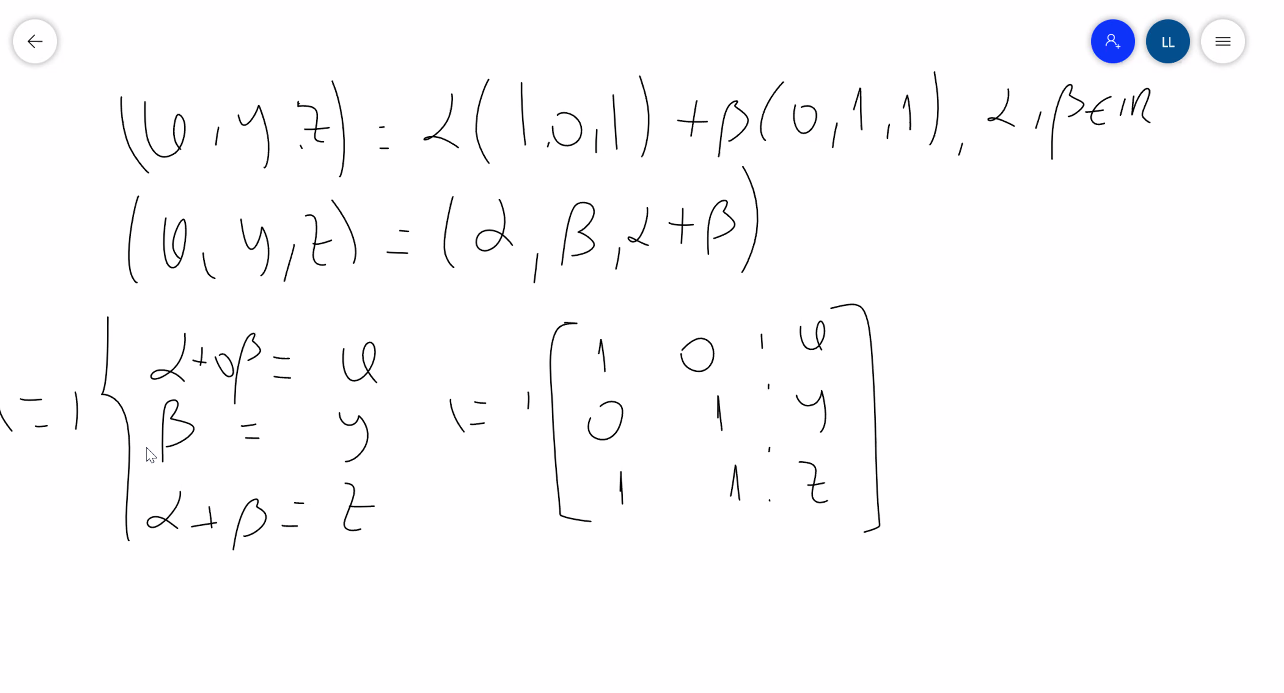 LL
(x, y, z) = α(1,0,1) + β(0,1,1), α, β ∈ ℝ
(x, y, z) = (α, β, α+β)
α+0β = x
β = y
α+β = z
1 0 : x
0 1 : y
1 1 : z